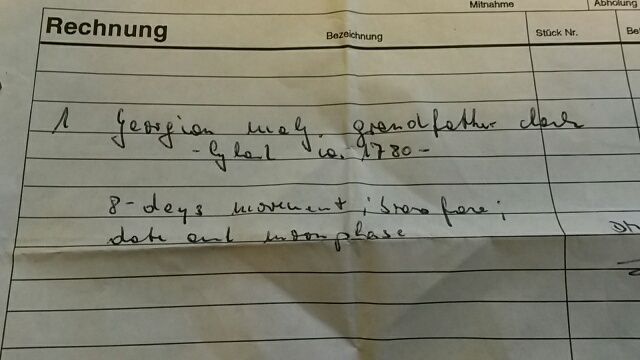 Mitnahme Abholung
Rechnung Bezeichnung Stück Nr.
1 Georgian mah. grandfather clock
ca. 1780 -
8-days movement; brass face;
date and moonphase